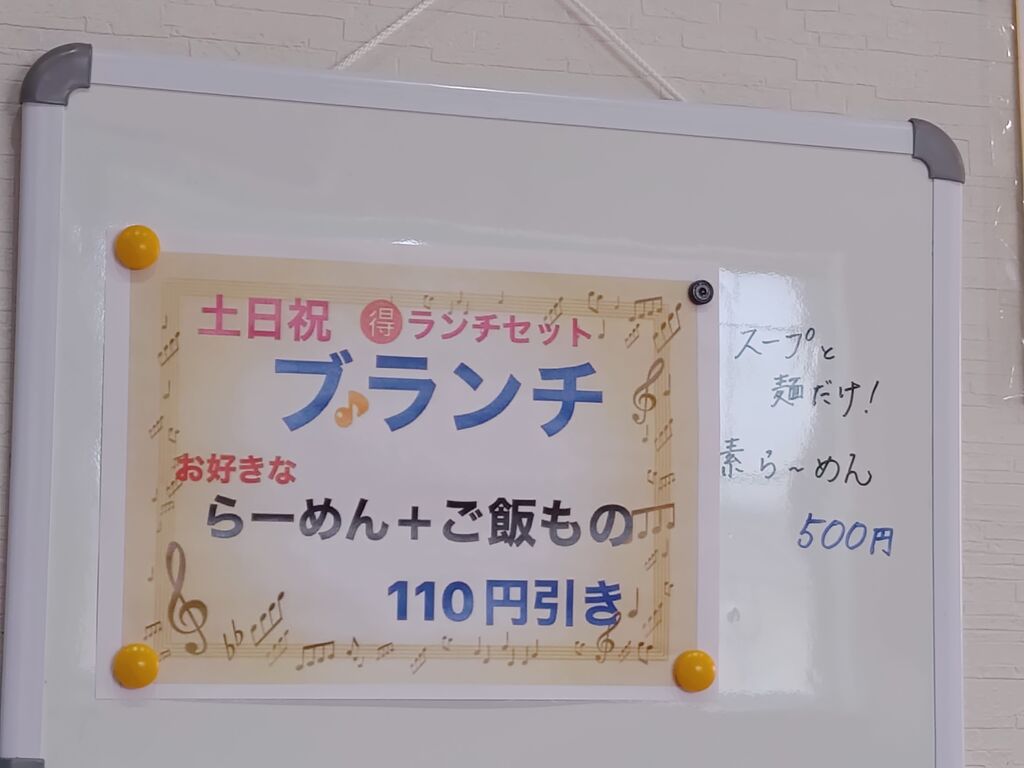 土日祝 ㊝ランチセット
ブランチ
お好きな
らーめん+ご飯もの
110円引き
スープと
麺だけ!
素ら～めん
500円